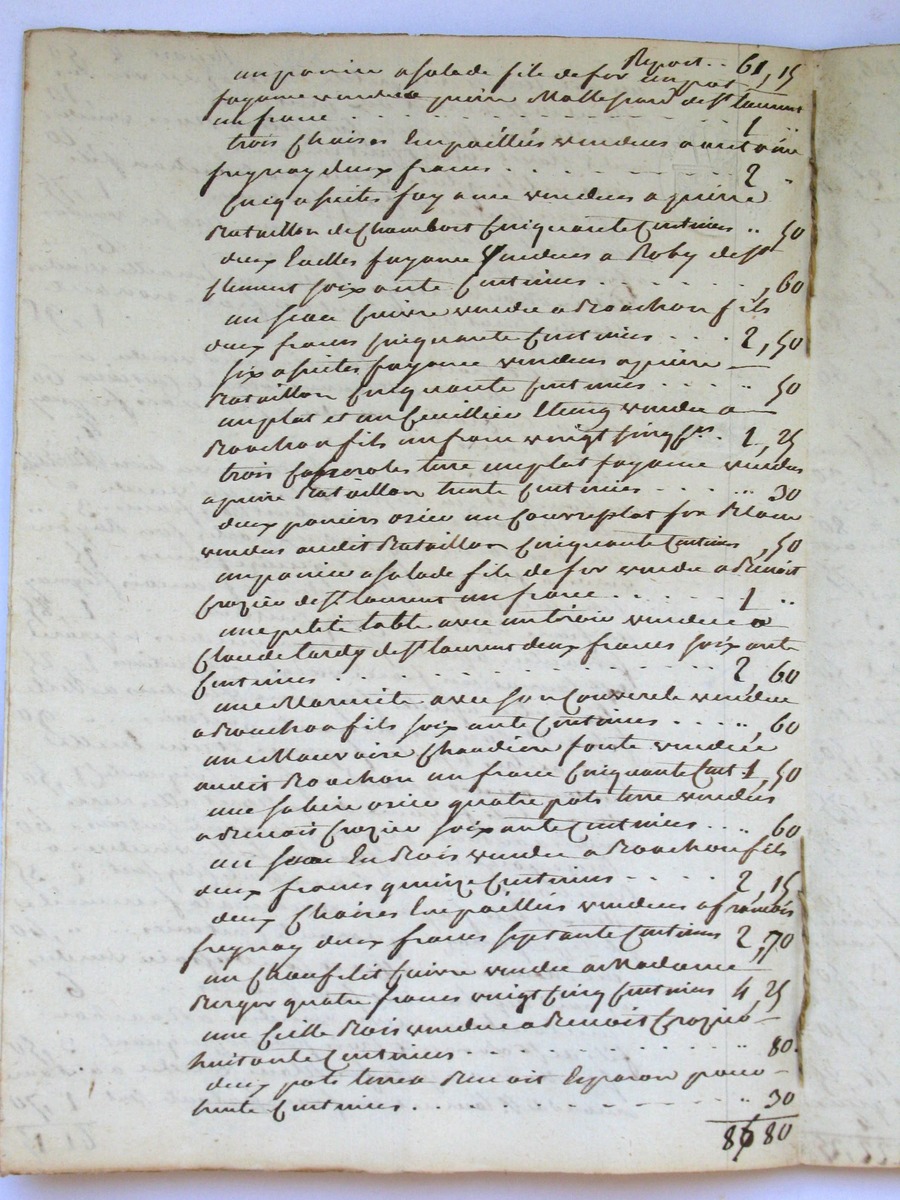 Report .. 61,15
un panier a salade file de fer un pot
fayance vendu a pierre de St laurent
un franc . . . . . . . 1 ..
trois Chaises Empaillés vendues a antoine
fregnay deux francs . . . . . . 2 "
Cinq assiettes fayance vendues a pierre
Bataillon de Chambost Cinquante Centimes .. 50
deux Ecuelles fayance Vendues a Roby de St
Clement soixante Centimes . . . . . , 60
un seau Cuivre vendu a Rouchon fils
deux francs cinquante Centimes . . . . 2,50
six assiettes fayance vendues a pierre
Bataillon Cinquante Centimes . . . . 50
un plat et un Cueillier Etaing vendu a
Rouchon fils un franc vingt cinq Cmes . 1,25
trois Casseroles terre un plat fayance vendus
a pierre Bataillon trente Centimes . . . . 30
deux paniers osier un Couvreplat fer Blanc
vendus audit Bataillon Cinquante Centimes , 50
un panier a salade file de fer vendu a Benoit
Crozier de St laurent un franc . . . . . . 1 ..
une petite table avec un tiroir vendue a
Claude tardy de St laurent deux francs soixante
Centimes . . . . . . . . . 2, 60
une Marmite avec son Couvercle vendue
a Rouchon fils soixante Centimes . . . . " , 60
une Mauvaise Chaudière fonte vendue
audit Rouchon un franc Cinquante Cent 1,50
une saliere osier quatre pots terre vendus
a Benoit Crozier soixante Centimes . . .. 60
un seau En Bois vendu a Rouchon fils
deux francs quinze Centimes . . . . . 2,15
deux Chaises Empaillés vendues a francois
fregnay deux francs septante Centimes 2,70
un Chaufelit Cuivre vendu a Madame
Berger quatre francs vingt cinq Centimes 4,25
une Bois vendue a Benoit Crozier
huitante Centimes . . . . . . . " 80.
deux pots terre a Benoit pour
trente Centimes . . . . . . . . " 30
80